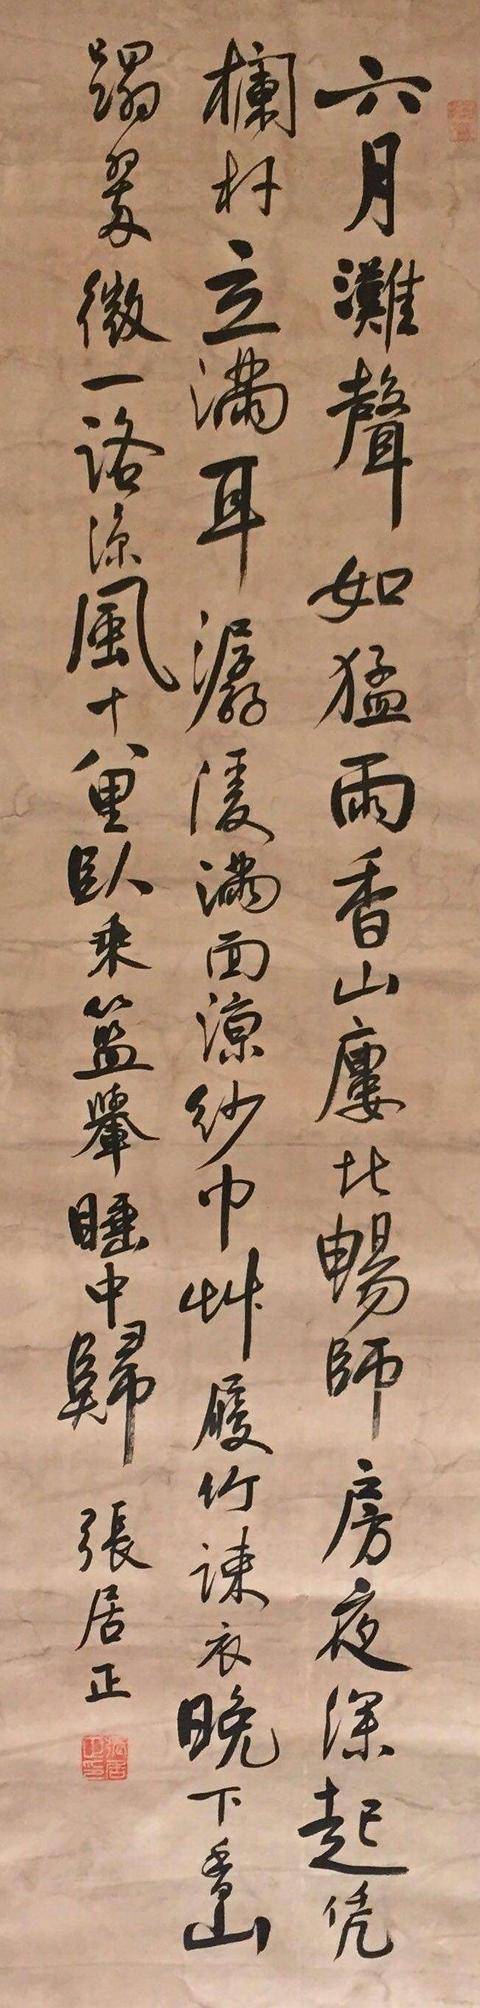 六月灘聲如猛雨香山廔北暢師房夜深起凭
欄杆立滿耳潺湲滿面涼紗巾艸履竹疎衣晚下香山
蹋翠微一路涼風十八里臥乘籃轝睡中歸
張居正